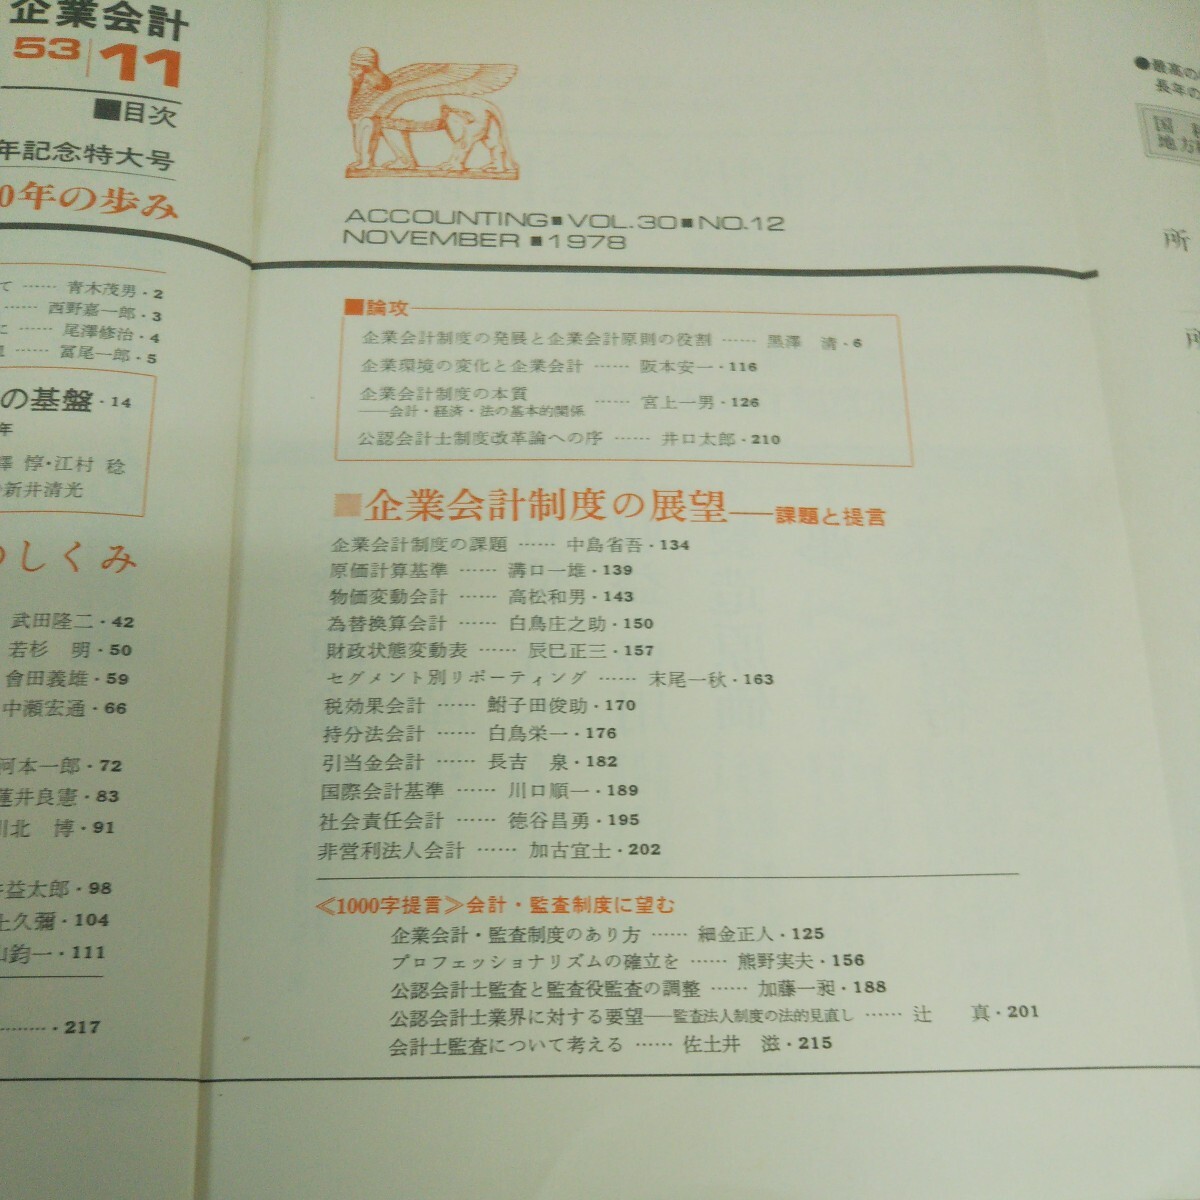 企業会計
53 11
■目次
年記念特大号
0年の歩み
て …… 青木茂男・2
…… 西野嘉一郎・3
に …… 尾澤修治・4
…… 冨尾一郎・5
の基盤・14
年
澤 惇・江村 稔
新井清光
のしくみ
武田隆二・42
若杉 明・50
會田義雄・59
中瀬宏通・66
河本一郎・72
蓮井良憲・83
川北 博・91
益太郎・98
久彌・104
山鈞一・111
……・217
ACCOUNTING■VOL.30■NO.12
NOVEMBER■1978
■論攻
企業会計制度の発展と企業会計原則の役割 …… 黒澤 清・6
企業環境の変化と企業会計 …… 阪本安一・116
企業会計制度の本質
——会計・経済・法の基本的関係 …… 宮上一男・126
公認会計士制度改革論への序 …… 井口太郎・210
■企業会計制度の展望——課題と提言
企業会計制度の課題 …… 中島省吾・134
原価計算基準 …… 溝口一雄・139
物価変動会計 …… 高松和男・143
為替換算会計 …… 白鳥庄之助・150
財政状態変動表 …… 辰巳正三・157
セグメント別リポーティング …… 末尾一秋・163
税効果会計 …… 鮒子田俊助・170
持分法会計 …… 白鳥栄一・176
引当金会計 …… 長吉 泉・182
国際会計基準 …… 川口順一・189
社会責任会計 …… 徳谷昌勇・195
非営利法人会計 …… 加古宜士・202
≪1000字提言≫会計・監査制度に望む
企業会計・監査制度のあり方 …… 細金正人・125
プロフェッショナリズムの確立を …… 熊野実夫・156
公認会計士監査と監査役監査の調整 …… 加藤一昶・188
公認会計士業界に対する要望——監査法人制度の法的見直し …… 辻 真・201
会計士監査について考える …… 佐土井 滋・215
●最高の
長年の
国
地方
所